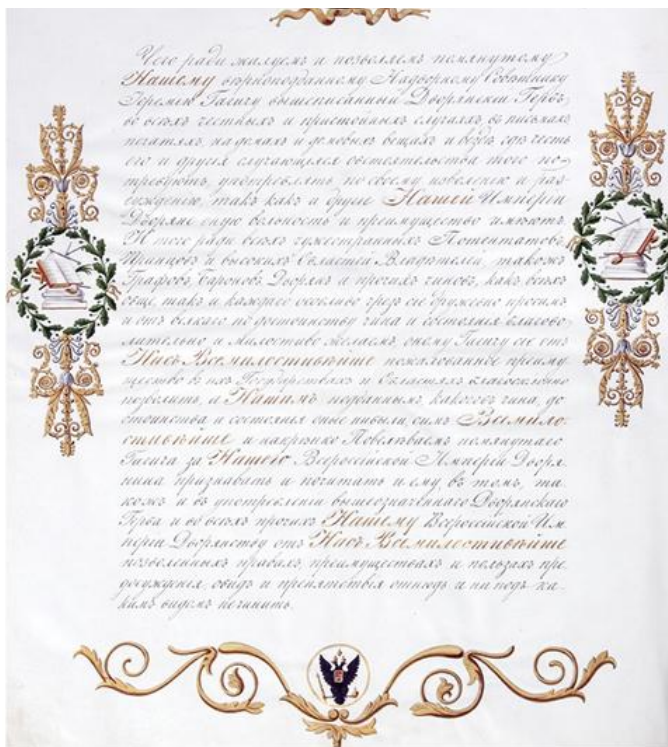 Чего ради жалуемъ и позволяемъ помянутому
Нашему вѣрноподданному Надворному Совѣтнику
Іеремію Гагичу вышеписанный Дворянскій Гербъ
во всѣхъ честныхъ и пристойныхъ случаяхъ, въ письмахъ
печатяхъ, на домахъ и домовыхъ вещахъ и вездѣ гдѣ честь
его и другія случающіяся обстоятельства того по-
требуютъ, употреблять по своему изволенію и раз-
сужденію, такъ какъ и другіе Нашей Имперіи
Дворяне оную вольность и преимущество имѣютъ.
И того ради всѣхъ чужестранныхъ Потентатовъ,
Принцовъ и высокихъ Областей Владѣтелей, такожъ
Графовъ, Бароновъ, Дворянъ и прочихъ чиновъ, какъ всѣхъ
обще, такъ и каждаго особливо чрезъ сіе дружебно просимъ
и отъ всякаго по достоинству чина и состоянія благово-
лительно и милостиво желаемъ, оному Гагичу сіе отъ
Насъ Всемилостивѣйше пожалованное преиму-
щество въ ихъ Государствахъ и Областяхъ благосклонно
позволить, а Нашимъ подданнымъ, какого бъ чина, до-
стоинства и состоянія оные ни были, симъ Всемило-
стивѣйше и накрѣпко Повелѣваемъ помянутаго
Гагича за Нашего Всероссійской Имперіи Дворя-
нина признавать и почитать и ему въ томъ, та-
кожъ и въ употребленіи вышеозначеннаго Дворянскаго
Герба и во всѣхъ прочихъ Нашему Всероссійской Им-
періи Дворянству отъ Насъ Всемилостивѣйше
позволенныхъ правахъ, преимуществахъ и пользахъ пре-
досужденія, обидъ и препятствія отнюдь и ни подъ ка-
кимъ видомъ не чинить.